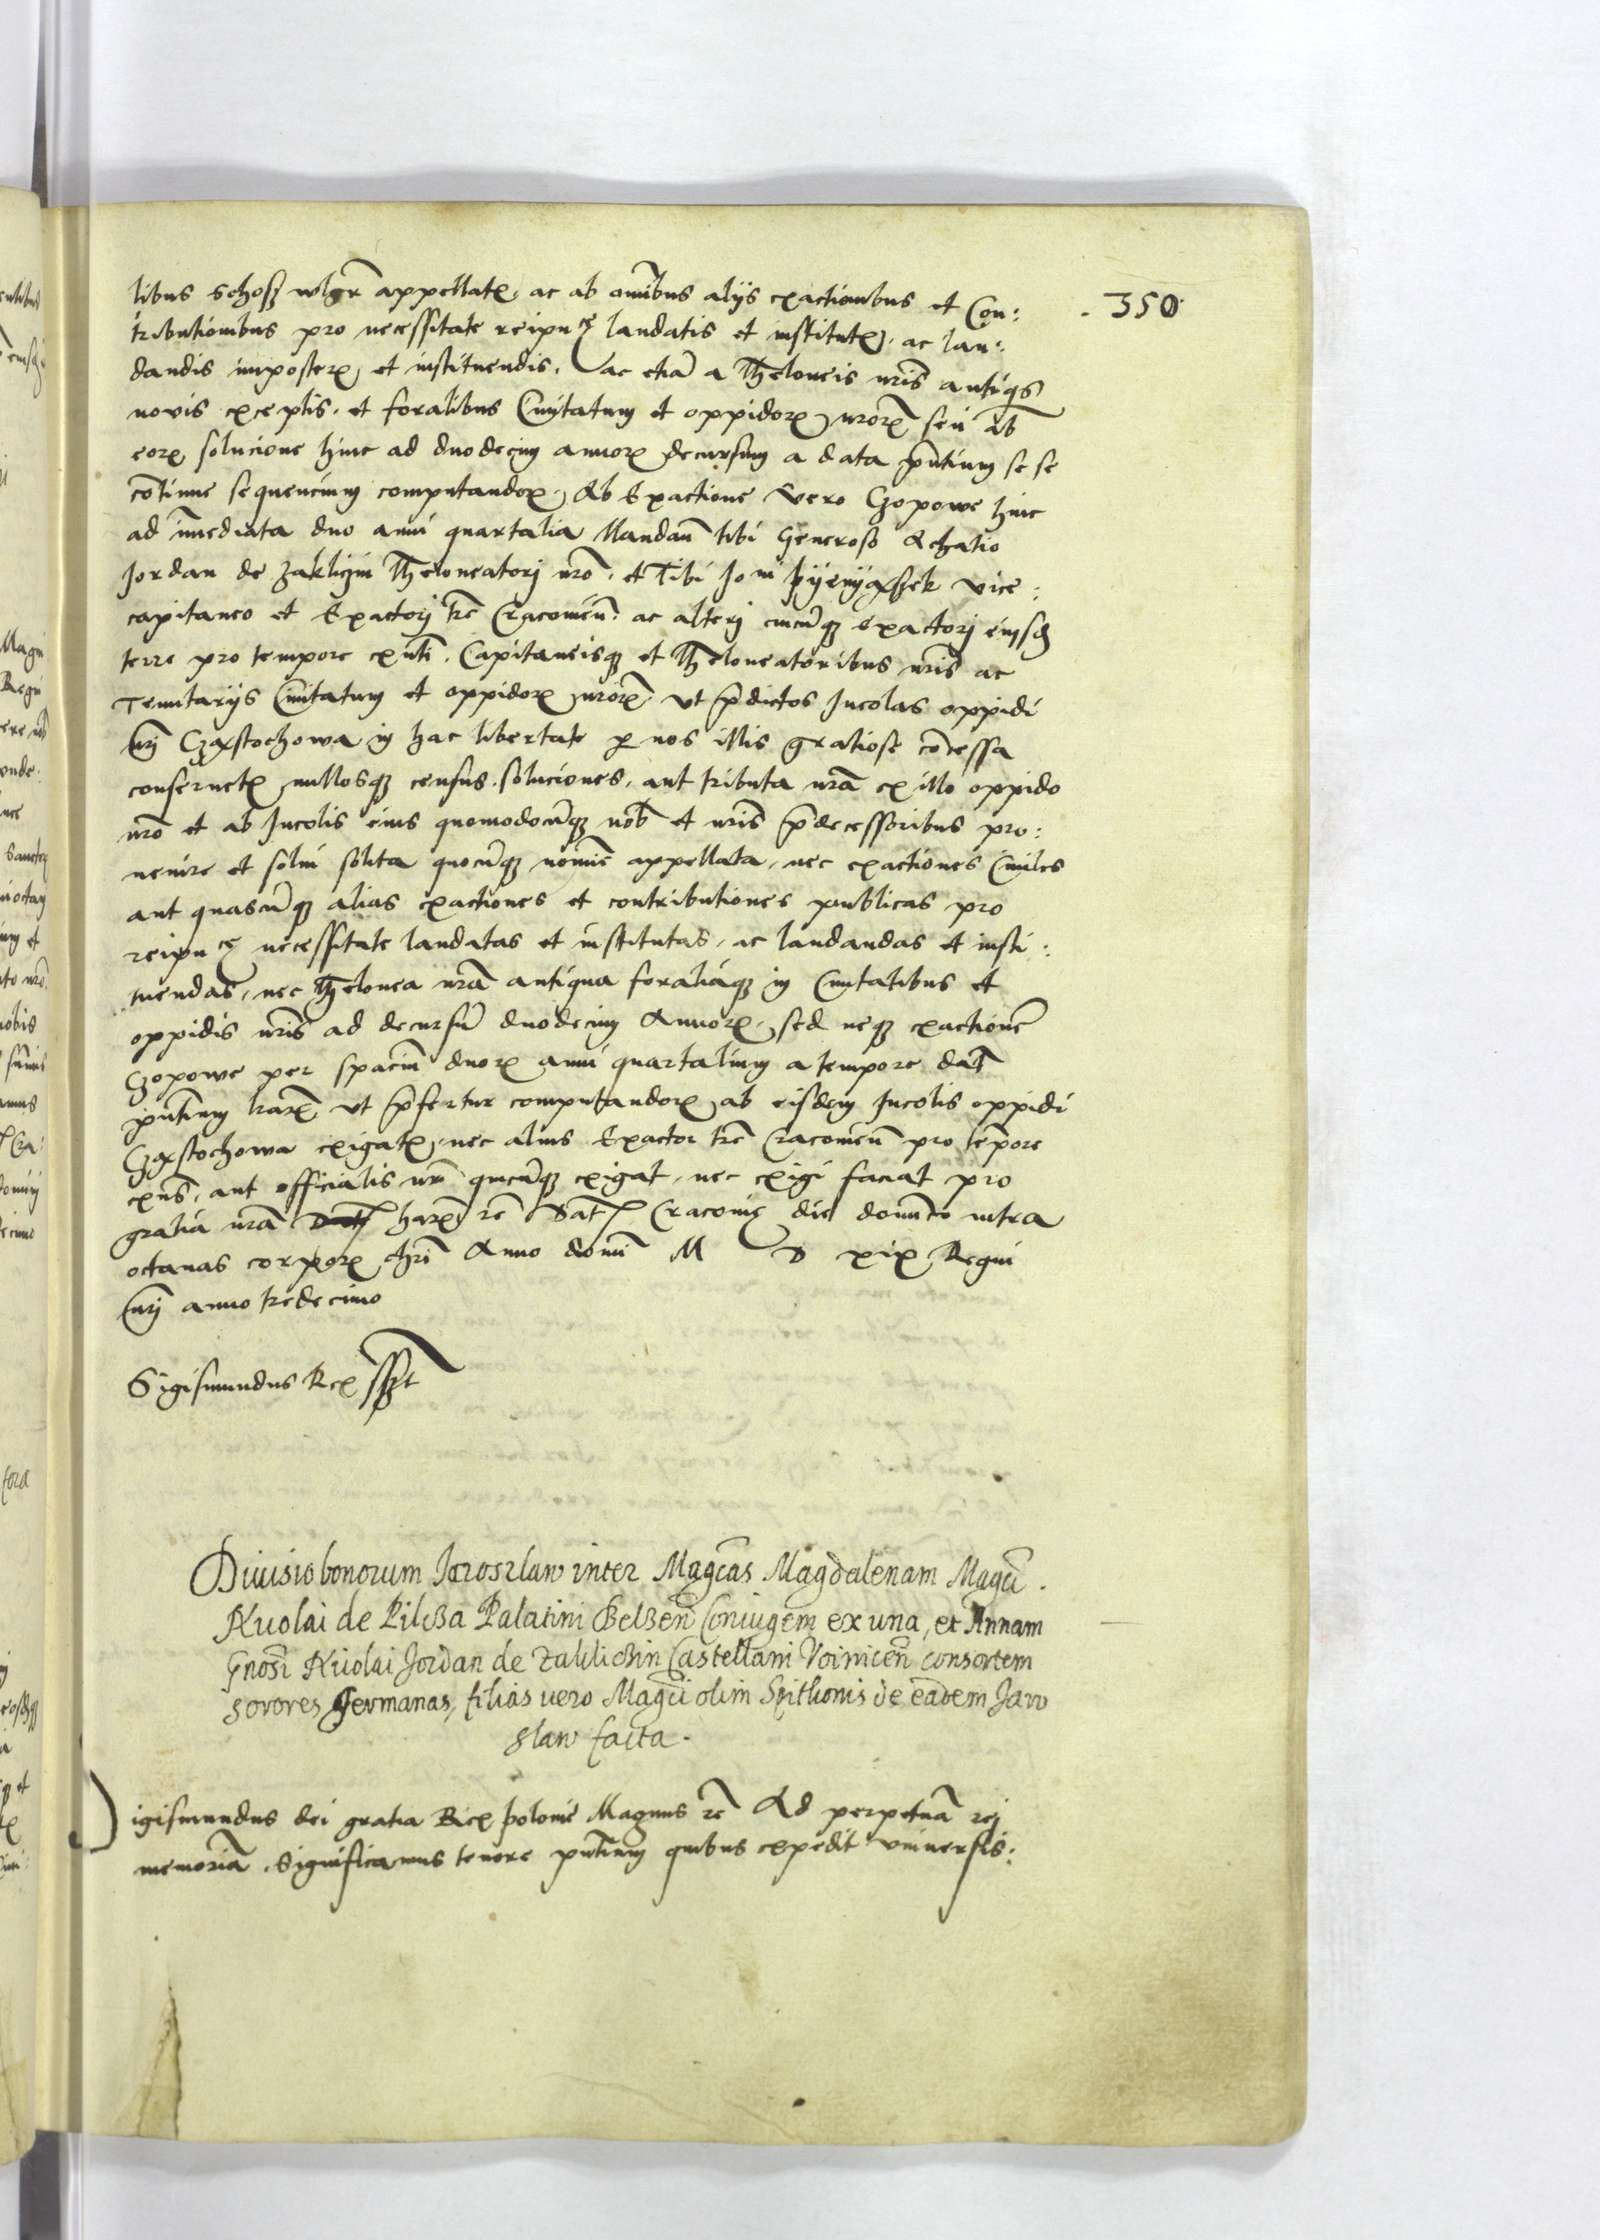 350
libus schosz wlgr appellatis, ac ab omibus alijs exactionibus et Con:
tributionibus pro necessitate reipuce laudatis et institutis, ac lau:
dandis imposterum et instituendis, ac etia a Theloneis nris antiqs
novis exceptis, et foralibus Civitatum et oppidorum nrorum seu ab
eorum solucione hinc ad duodecim annorum decursum a data pntium se se
cotinue sequencium computandorum, Ab Exactione Vero Czopowe hinc
ad imediata duo anni quartalia Mandam tibi Generoso Achatio
Jordan de Zakliczin Theloneatorj nro, et Tibi Joni pyenyaszek vice:
capitaneo et Exactorj tre Cracovien. ac alterj cuicuqz exactorj eiusd
terre pro tempore exnti, Capitaneisqz et Theloneatoribus nris ac
Tenutarijs Civitatum et oppidorum nrorum, ut pdictos Incolas oppidi
nrj Czastochowa in hac libertate p nos illis gratiose cocessa
conservetis, nullosqz census, soluciones, aut tributa nra ex illo oppido
nro et ab Incolis eius quomodocuqz nob et nris pdecessoribus pro:
venire et solvi solita quocuqz noie appellata, nec exactiones Civiles
aut quascuqz alias exactiones et contributiones publicas pro
reipuce necessitate laudatas et institutas, ac laudandas et insti:
tuendas, nec Thelonea nra antiqua foraliaqz in Civitatibus et
oppidis nris ad decursu duodecim Annorum, sed neqz exactione
Czopowe per spaciu duorum anni quartalium a tempore dat
pntium harum, ut pfertur computandorum ab eisdem Incolis oppidi
Czastochowa exigatis, nec alius Exactor tre Cracovien pro tepore
exns, aut officialis nr quicuqz exigat, nec exigi faciat pro
gratia nra harum re Dat Cracovie die dominico intra
octavas corporis chri Anno domi M D xix Regni
nrj anno tredecimo
Sigismundus Rex sszt
Divisio bonorum Jaroslaw inter Magcas Magdalenam Magci
Nicolai de Pilcza Palatini Belzen Coniugem ex una, et Annam
Gnosi Nicolai Jordan de Zaklichin Castellani Voinicen consortem
sorores germanas, filias vero Magci olim Spithonis de eadem Jaro
slaw facta.
igismundus dei gratia Rex polonie Magnus re Ad perpetua rej
memoria. Significamus tenore pntium quibus expedit vniversis: